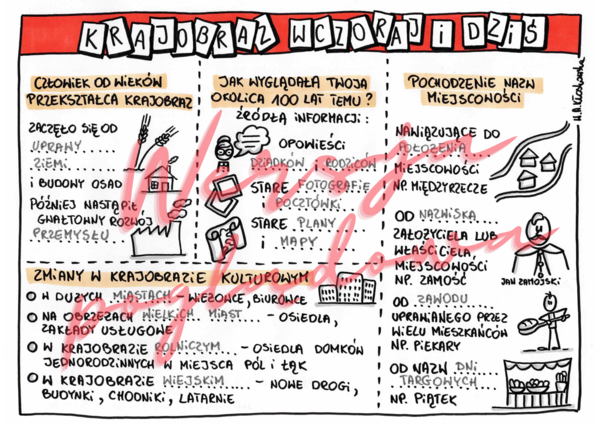 KRAJOBRAZ WCZORAJ I DZIŚ
CZŁOWIEK OD WIEKÓW
PRZEKSZTAŁCA KRAJOBRAZ
ZACZĘŁO SIĘ OD
UPRAWY
ZIEMI
I BUDOWY OSAD
PÓŹNIEJ NASTĄPIŁ
GWAŁTOWNY ROZWÓJ
PRZEMYSŁU
JAK WYGLĄDAŁA TWOJA
OKOLICA 100 LAT TEMU?
ŹRÓDŁA INFORMACJI:
OPOWIEŚCI
DZIADKÓW I RODZICÓW
STARE FOTOGRAFIE
I POCZTÓWKI
STARE PLANY
I MAPY
ZMIANY W KRAJOBRAZIE KULTUROWYM
W DUŻYCH MIASTACH - WIEŻOWCE, BIUROWCE
NA OBRZEŻACH WIELKICH MIAST - OSIEDLA,
ZAKŁADY USŁUGOWE
W KRAJOBRAZIE ROLNICZYM - OSIEDLA DOMKÓW
JEDNORODZINNYCH W MIEJSCA PÓL I ŁĄK
W KRAJOBRAZIE WIEJSKIM - NOWE DROGI,
BUDYNKI, CHODNIKI, LATARNIE
POCHODZENIE NAZW
MIEJSCOWOŚCI
NAWIĄZUJĄCE DO
POŁOŻENIA
MIEJSCOWOŚCI
NP. MIĘDZYRZECZE
OD NAZWISKA
ZAŁOŻYCIELA LUB
WŁAŚCICIELA,
MIEJSCOWOŚCI
NP. ZAMOŚĆ
JAN ZAMOJSKI
OD ZAWODU
UPRAWIANEGO PRZEZ
WIELU MIESZKAŃCÓW
NP. PIEKARY
OD NAZW DNI
TARGOWYCH
NP. PIĄTEK
Wersja
poglądowa